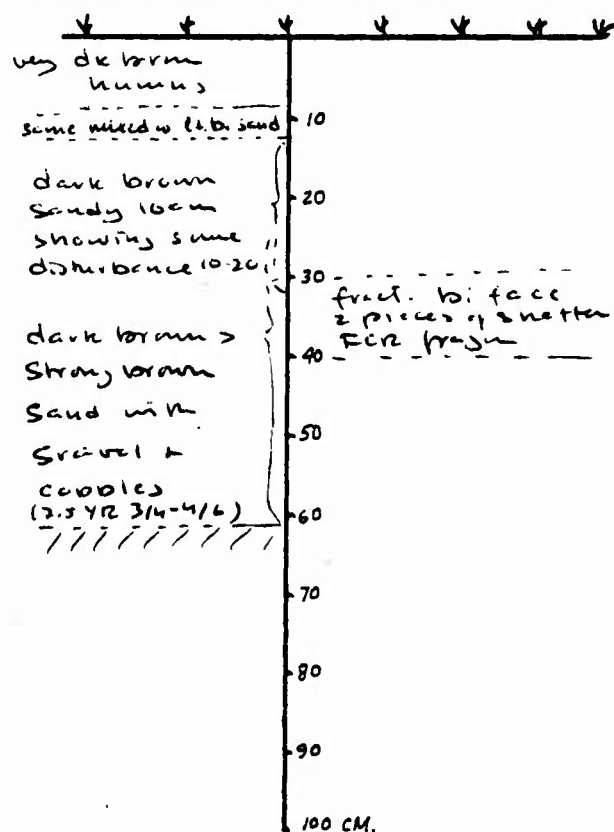 very dk brown
humus
same mixed w lt. br. sand
dark brown
sandy loam
showing some
disturbance 10-20
dark brown >
strong brown
sand with
gravel +
cobbles
(7.5 YR 3/4-4/6)
10
20
30
fract. biface
2 pieces of shatter
FCR fragm
40
50
60
70
80
90
100 CM.